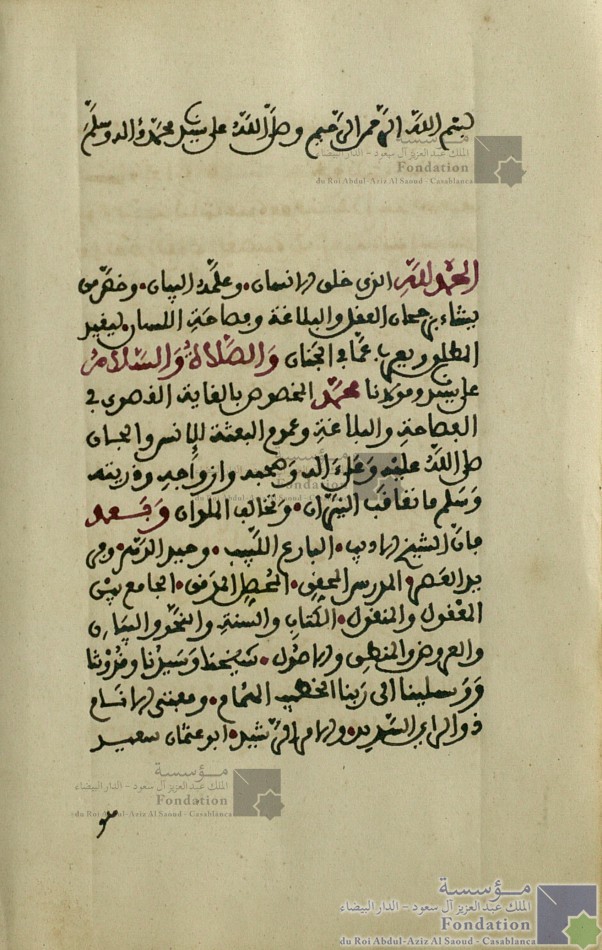 بسم الله الرحمن الرحيم وصلى الله على سيدنا محمد وآله وسلم
الحمد لله الذي خلق الانسان • وعلمه البيان • وخص من
يشاء برجحان العقل والبلاغة وفصاحة اللسان • ليفيد
المطلع ويعرب عما في الجنان والصلاة والسلام
على سيدنا ومولانا محمد المخصوص بالغاية القصوى في
الفصاحة والبلاغة وعموم البعثة للإنس والجان
صلى الله عليه وعلى ءاله وصحبه وازواجه وذريته
وسلم ما تعاقب النيران • وتخالف الملوان وبعد
فان الشيخ الاديب • البارع اللبيب • وحيد الدهر • وفريد العصر
المدرس المحقق • المحصل المدقق • الجامع بين
المعقول والمنقول • الكتاب والسنة والنحو والبيان
والعروض والمنطق والاصول • شيخنا وسيدنا وقدوتنا
ووسيلتنا الى ربنا الخطيب الهمام • ومفتي الانام
ذو الراي السديد • والامر الرشيد • ابو عثمان سعيد
مؤسسة
الملك عبد العزيز آل سعود - الدار البيضاء
Fondation
du Roi Abdul-Aziz Al Saoud - Casablanca